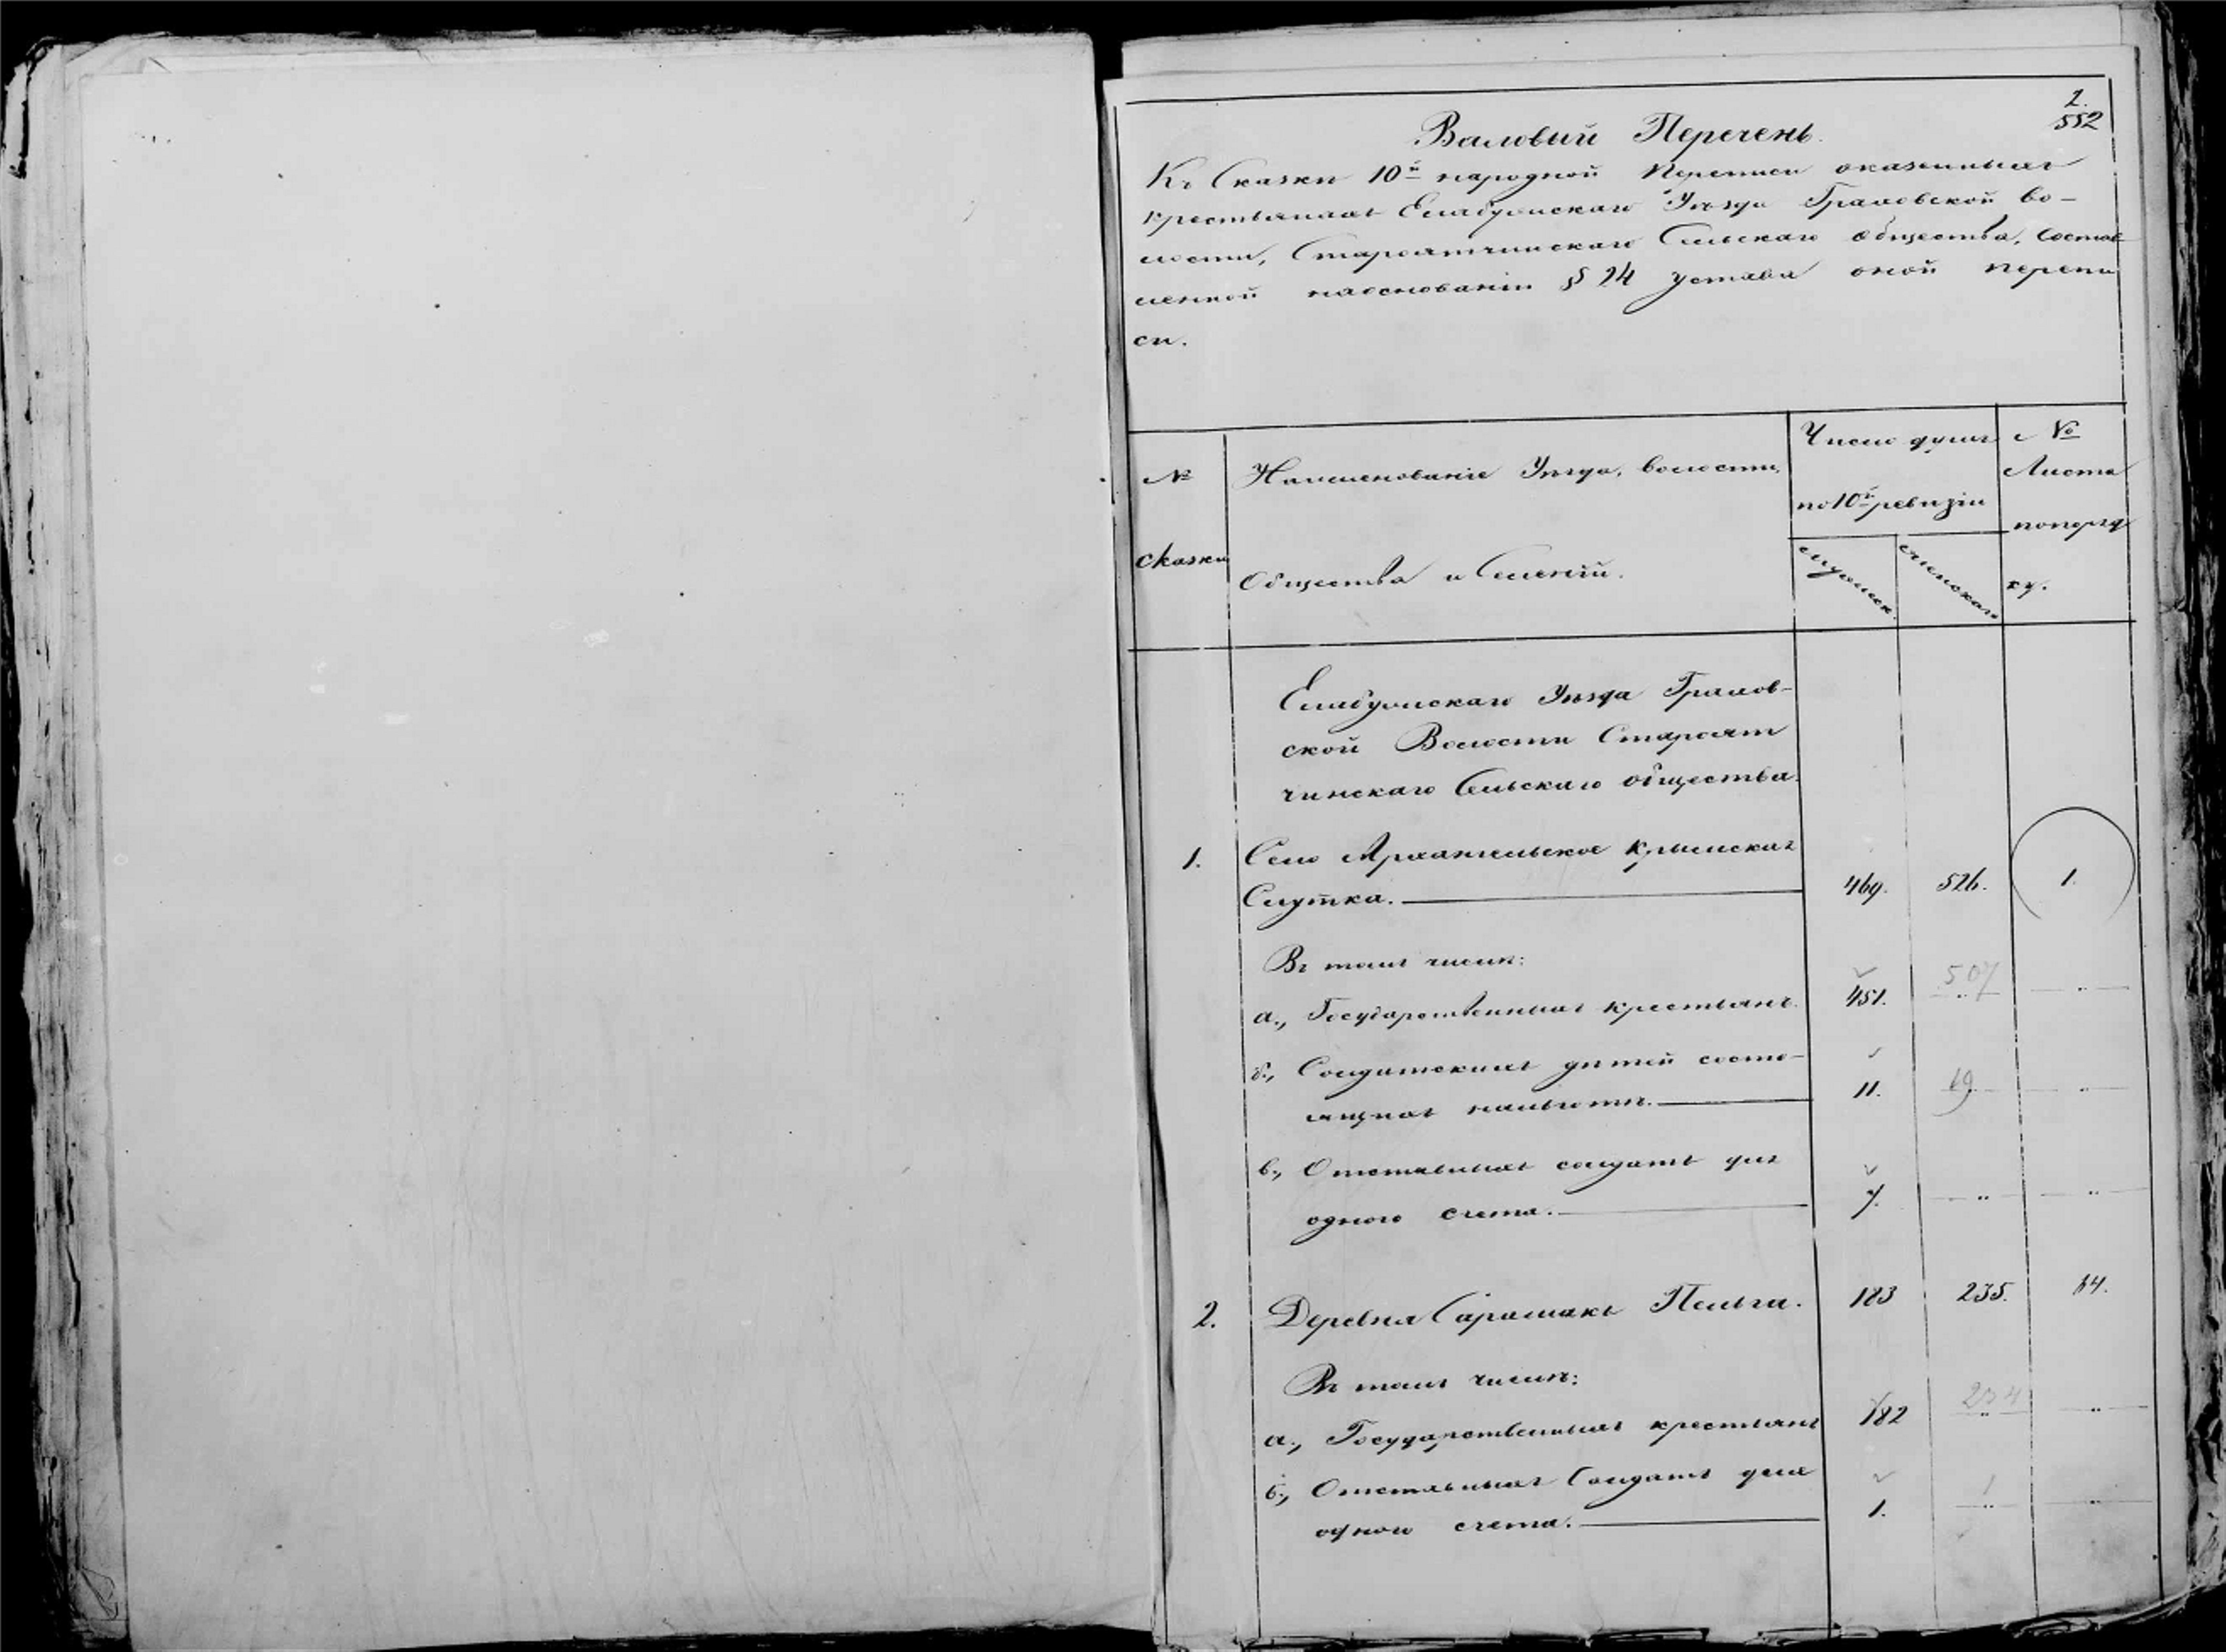 2.
552
Валовый Перечень.
Къ Сказкѣ 10й народной переписи оказенныхъ
крестьянахъ Елабужскаго Уѣзда Граховской во-
лости, Староятчинскаго Сельскаго общества, состав
ленной наоснованіи § 24 Устава оной перепи
си.
№ сказки
Наименованіе Уѣзда, волости,
Общества и Селеній.
Число душъ
по 10й ревизіи
мужеск.
женскаго
№
Листа
попоряд
ку.
Елабужскаго Уѣзда Грахов-
ской Волости Староят
чинскаго Сельскаго общества.
1. Село Архангельское Крымская
Слутка. 469. 526. 1.
Въ томъ числѣ:
507
а., Государственныхъ крестьянъ. 451. „ „
б., Солдатскихъ дѣтей состо-
ящихъ нальготѣ. 11. 19. „
в., Отставныхъ солдатъ для
одного счета. 7. „ „
2. Деревня Сарамакъ Пельга. 183 235. 14.
Въ томъ числѣ:
234
а., Государственныхъ крестьянъ 182 „ „
б., Отставныхъ Солдатъ для
1
одного счета. 1. „ „